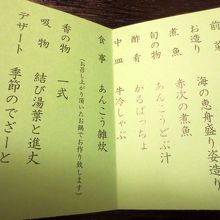 前菜
お造り 海の恵舟盛り姿造り
煮魚 赤次の煮魚
旬の物 あんこうどぶ汁
酢肴 かるぱっちょ
中皿 牛冷しゃぶ
食事 あんこう雑炊
(お召し上がり頂いたお鍋でお作り致します)
香の物 一式
吸物 結び湯葉と進丈
デザート 季節のでざーと